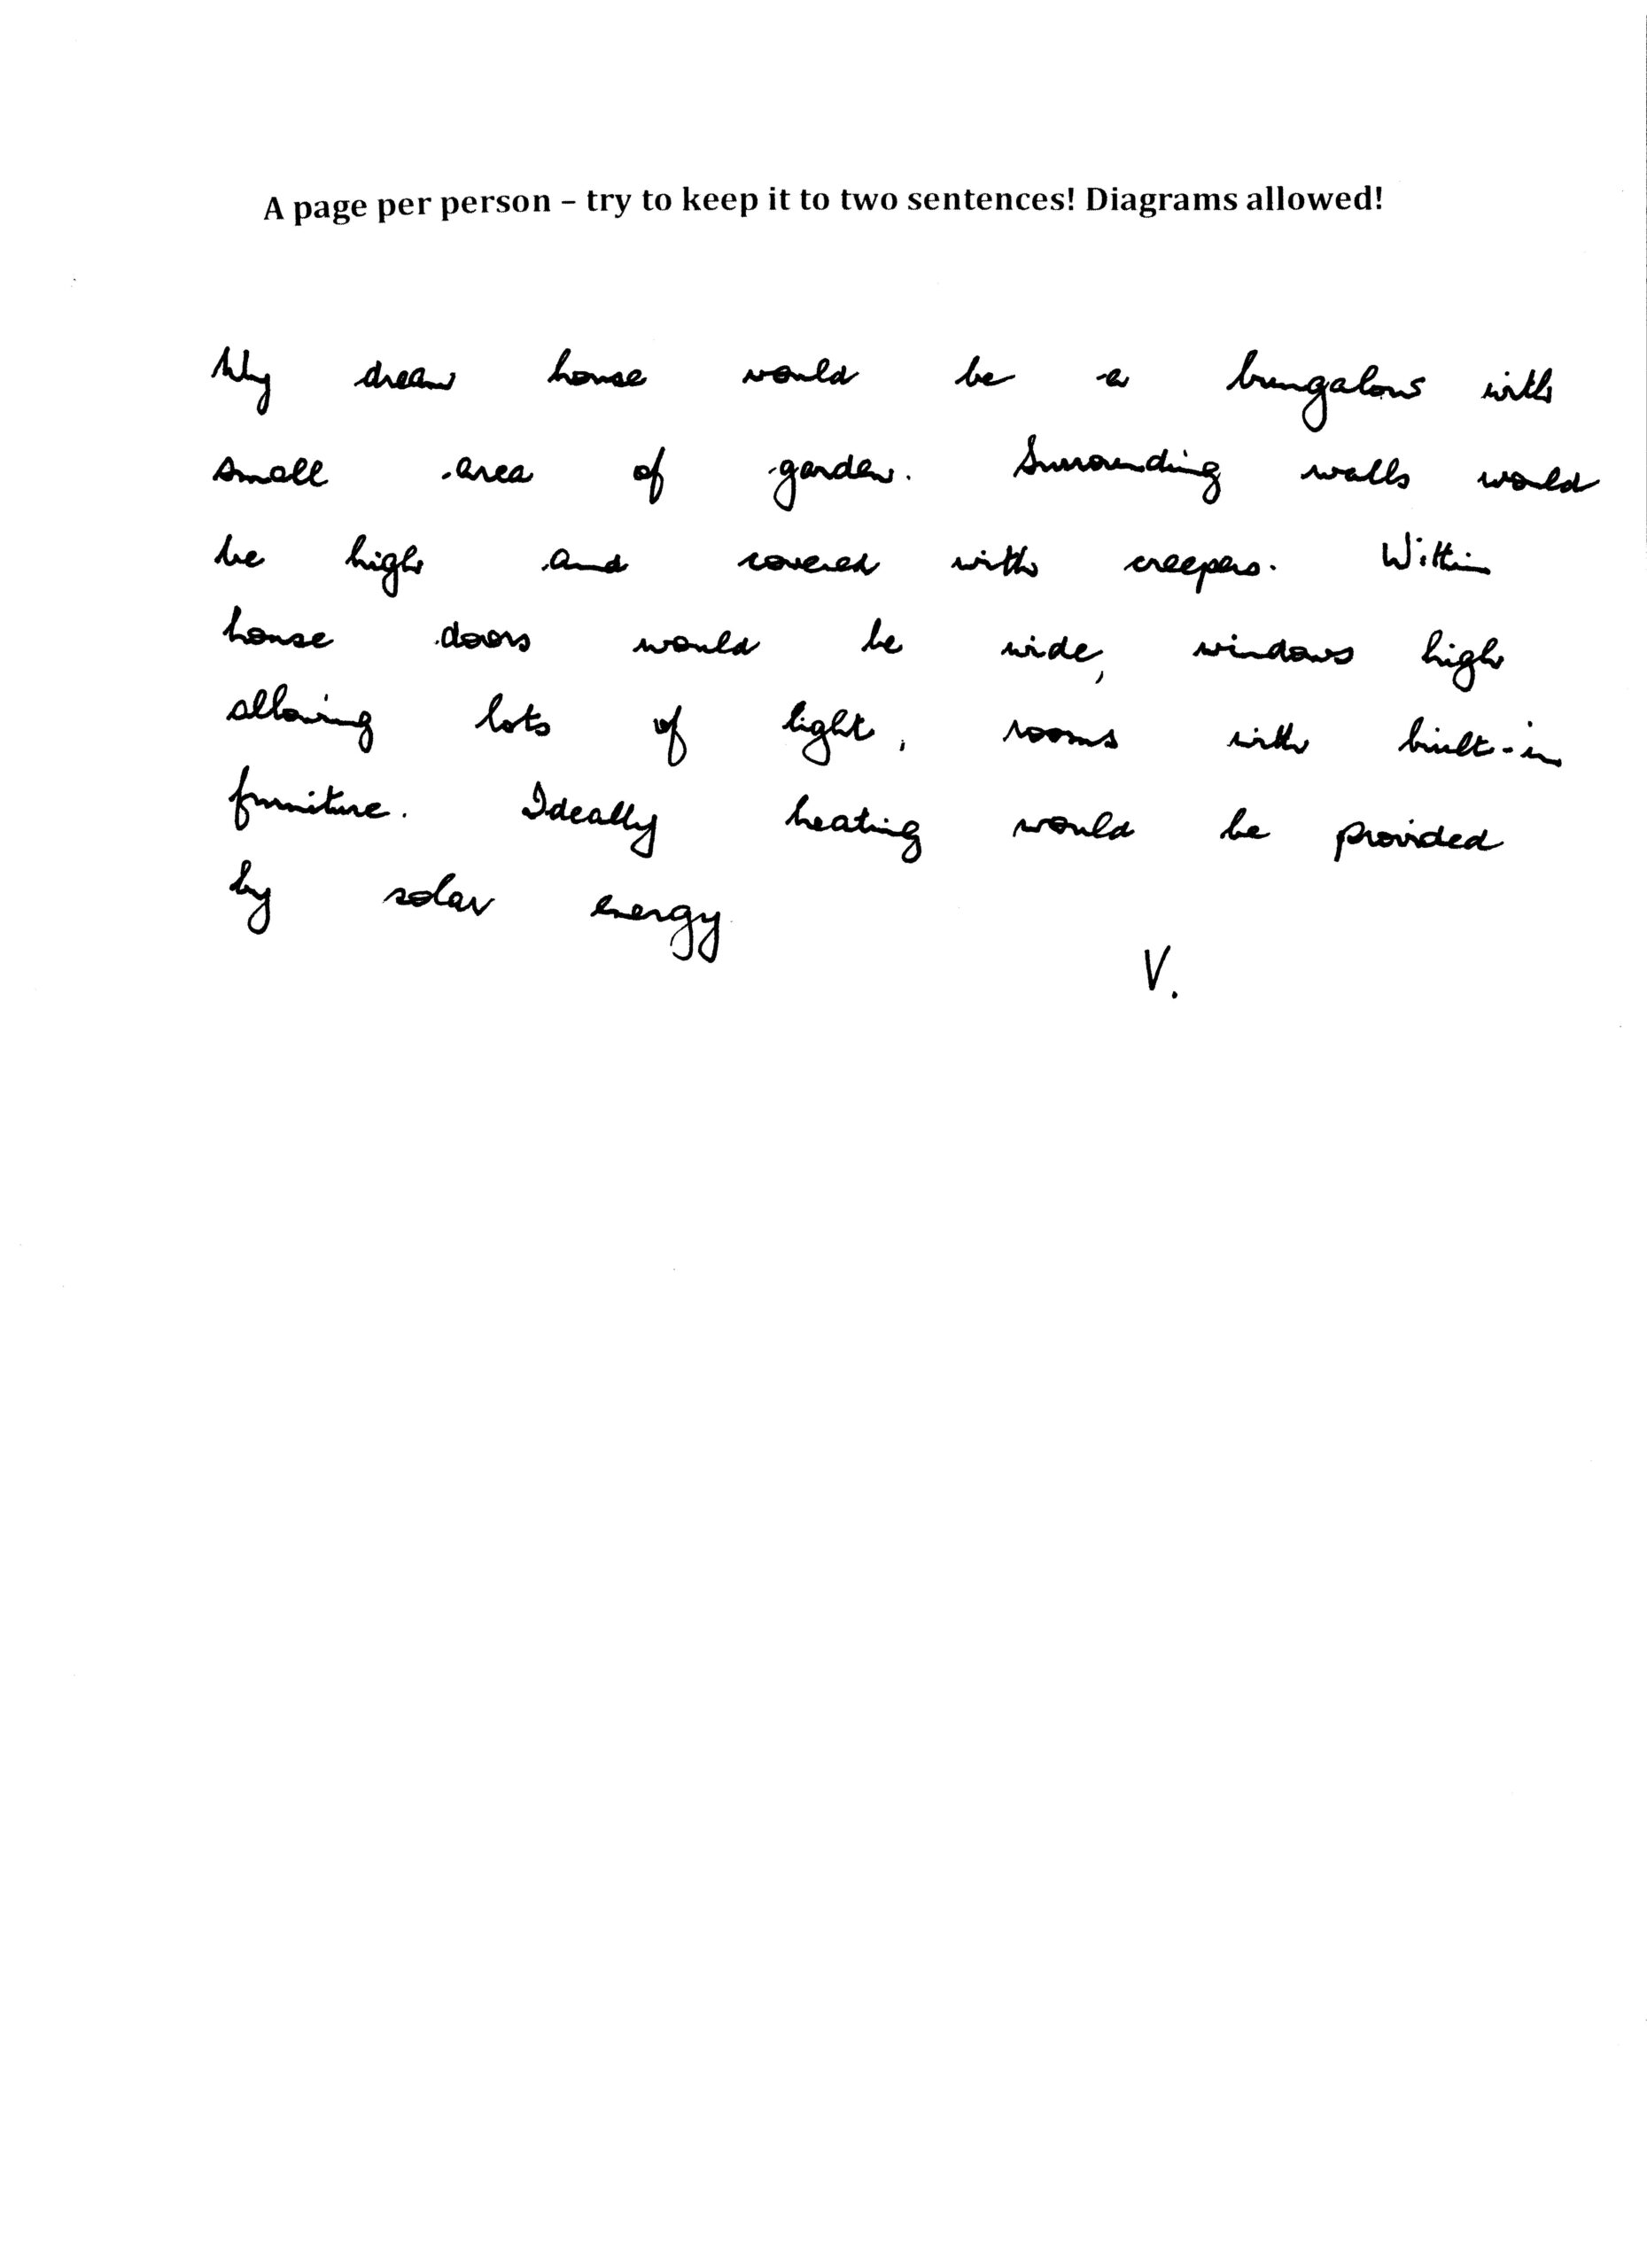 A page per person – try to keep it to two sentences! Diagrams allowed!
My dream house would be a bungalow with
small area of garden. Surrounding walls would
be high and covered with creepers. Within
house doors would be wide, windows high
allowing lots of light, rooms with built-in
furniture. Ideally heating would be provided
by solar energy
V.